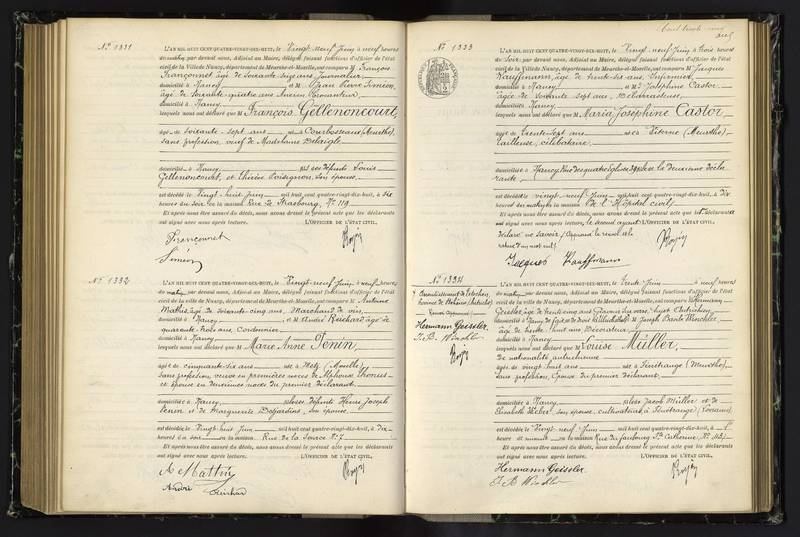 Nº 1331
L'AN MIL HUIT CENT QUATRE-VINGT-DIX-HUIT, le Vingt-neuf Juin à neuf heures
du matin, par devant nous, Adjoint au Maire, délégué faisant fonctions d'officier de l'état
civil de la Ville de Nancy, département de Meurthe-et-Moselle, ont comparu M. François
Françonnet âgé de Soixante six ans, Journalier
domicilié à Nancy et M. Jean Pierre Siméon
âgé de Soixante-quatre ans Ancien
domicilié à Nancy
lesquels nous ont déclaré que M. François Gellenoncourt,
âgé de Soixante-sept ans né à Courbesseaux (Meurthe),
sans profession, veuf de Madeleine
domicilié à Nancy fils des défunts Louis
Gellenoncourt, et Thérèse Voisignon, son épouse,
est décédé le Vingt-huit Juin mil huit cent quatre-vingt-dix-huit, à six
heures du soir, en la maison Rue de Strasbourg, Nº 119
Et après nous être assuré du décès, nous avons dressé le présent acte que les déclarants
ont signé avec nous après lecture. L'OFFICIER DE L'ÉTAT CIVIL,
Françonnet
Siméon
Nº 1332
L'AN MIL HUIT CENT QUATRE-VINGT-DIX-HUIT, le Vingt-neuf Juin à neuf heures
du matin, par devant nous, Adjoint au Maire, délégué faisant fonctions d'officier de l'état
civil de la ville de Nancy, département de Meurthe-et-Moselle, ont comparu M. Antoine
Mathis âgé de Soixante-cinq ans, Marchand de vin,
domicilié à Nancy et M. André Reichard âgé de
quarante-trois ans, Cordonnier,
domicilié à Nancy
lesquels nous ont déclaré que M. Marie Anne Penin,
âgée de cinquante-six ans née à Metz (Moselle)
Sans profession, veuve en premières noces de Alphonse Thonus
et épouse en deuxièmes noces du premier déclarant
domiciliée à Nancy fille des défunts Henri Joseph
Penin et de Marguerite Desjardins, son épouse,
est décédée le Vingt-huit Juin mil huit cent quatre-vingt-dix-huit, à dix
heures du soir en la maison Rue de la Source Nº 7
Et après nous être assuré du décès, nous avons dressé le présent acte que les déclarants
ont signé avec nous après lecture. L'OFFICIER DE L'ÉTAT CIVIL,
André
Nº 1333
L'AN MIL HUIT CENT QUATRE-VINGT-DIX-HUIT, le Vingt-neuf Juin à trois heures
du Soir, par devant nous, Adjoint au Maire, délégué faisant fonctions d'officier de l'état
civil de la Ville de Nancy, département de Meurthe-et-Moselle, ont comparu M. Jacques
Kauffmann, âgé de trente-six ans, Infirmier,
domicilié à Nancy et Mme Joséphine Castor
âgée de soixante-sept ans,
domiciliée à Nancy
lesquels nous ont déclaré que M. Maria Joséphine Castor
âgée de trente-sept ans née à Viterne (Meurthe)
tailleuse, célibataire,
domiciliée à Nancy, Rue des quatre Eglises fille de la deuxième décla
rante,
est décédée le vingt-neuf Juin mil huit cent quatre-vingt-dix-huit, à dix
heures du matin en la maison de l'Hôpital civil,
Et après nous être assuré du décès, nous avons dressé le présent acte que les déclarants
ont signé avec nous après lecture, la seconde ayant L'OFFICIER DE L'ÉTAT CIVIL,
déclaré ne savoir
Jacques Kauffmann
Nº 1334
L'AN MIL HUIT CENT QUATRE-VINGT-DIX-HUIT, le Trente Juin à neuf heures
du matin, par devant nous, Adjoint au Maire, délégué faisant fonctions d'officier de l'état
civil de la ville de Nancy, département de Meurthe-et-Moselle, ont comparu M. Hermann
Geissler, âgé de trente-cinq ans sujet Autrichien
domicilié à et M. Joseph
âgé de trente-huit ans Décorateur
domicilié à Nancy
lesquels nous ont déclaré que M. Louise Müller,
de nationalité autrichienne
âgée de vingt huit ans née à Fénétrange (Meurthe)
sans profession, épouse du premier déclarant,
domiciliée à Nancy fille de Jacob Müller et de
Elisabeth Weber, son épouse, cultivateurs à Fénétrange (Lorraine),
est décédée le Vingt-neuf Juin mil huit cent quatre-vingt-dix-huit, à
heures en la maison Rue du faubourg Ste Catherine, Nº
Et après nous être assuré du décès, nous avons dressé le présent acte que les déclarants
ont signé avec nous après lecture. L'OFFICIER DE L'ÉTAT CIVIL,
Hermann Geissler
Hermann Geissler